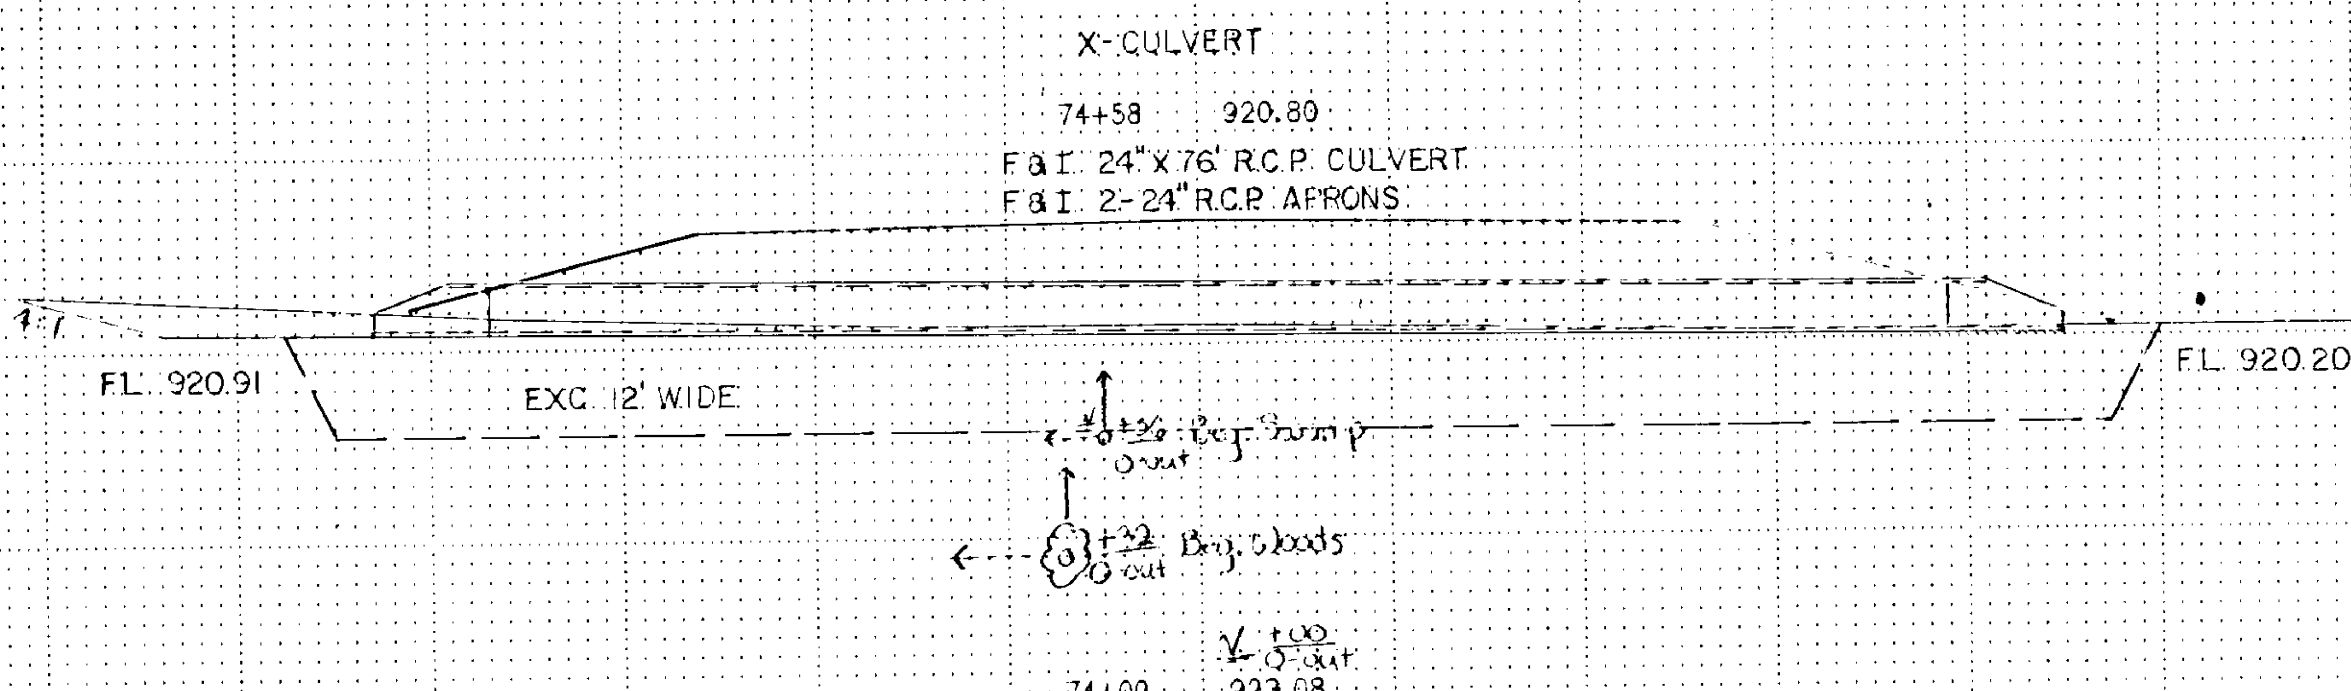 X-CULVERT
74+58 920.80
F & I 24" X 76' R.C.P. CULVERT
F & I 2-24" R.C.P. APRONS
4:1
F.L. 920.91
EXC. 12' WIDE
F.L. 920.20
Beg. Swamp
0-out
+32 Beg. Woods
0-out
+00
0-out
74+00 923.08